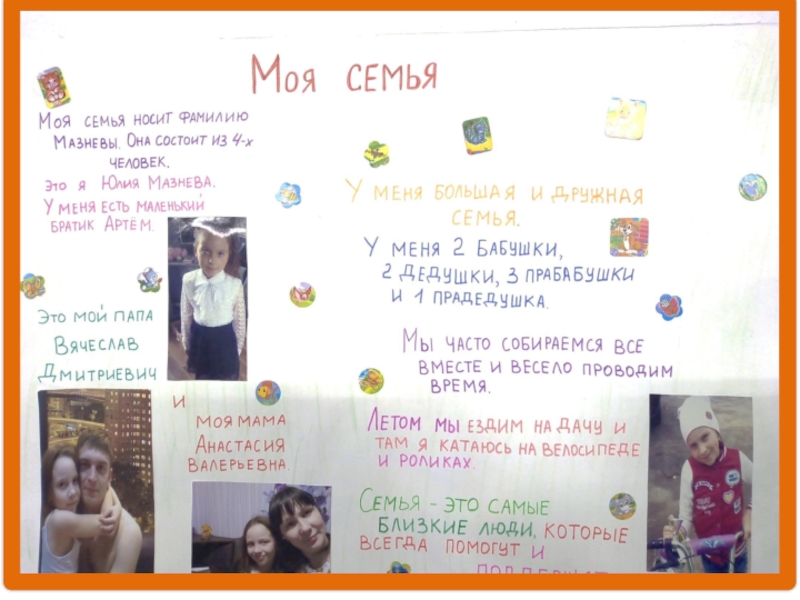 Моя семья
Моя семья носит фамилию
Мазневы. Она состоит из 4-х
человек.
Это я Юлия Мазнева.
У меня есть маленький
братик Артём.
Это мой папа
Вячеслав
Дмитриевич
и
моя мама
Анастасия
Валерьевна.
У меня большая и дружная
семья.
У меня 2 бабушки,
2 дедушки, 3 прабабушки
и 1 прадедушка.
Мы часто собираемся все
вместе и весело проводим
время.
Летом мы ездим на дачу и
там я катаюсь на велосипеде
и роликах.
Семья - это самые
близкие люди, которые
всегда помогут и